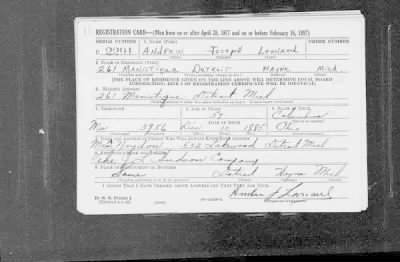 REGISTRATION CARD—(Men born on or after April 28, 1877 and on or before February 16, 1897)
SERIAL NUMBER 1. NAME (Print) ORDER NUMBER
U 2291 Andrew Joseph Leonard
2. PLACE OF RESIDENCE (Print)
261 Manistique Detroit Wayne Mich.
(THE PLACE OF RESIDENCE GIVEN ON THE LINE ABOVE WILL DETERMINE LOCAL BOARD
JURISDICTION; LINE 2 OF REGISTRATION CERTIFICATE WILL BE IDENTICAL)
3. MAILING ADDRESS
261 Manistique Detroit Mich
4. TELEPHONE 5. AGE IN YEARS 6. PLACE OF BIRTH
Columbus
3956 Dec 10 1885 Ohio
7. NAME AND ADDRESS OF PERSON WHO WILL ALWAYS KNOW YOUR ADDRESS
532 Lakewood Detroit Mich
8. EMPLOYER'S NAME AND ADDRESS
The J L Hudson Company
9. PLACE OF EMPLOYMENT OR BUSINESS
Same Detroit Wayne Mich
I AFFIRM THAT I HAVE VERIFIED ABOVE ANSWERS AND THAT THEY ARE TRUE.
D. S. S. Form 1
Andrew J Leonard